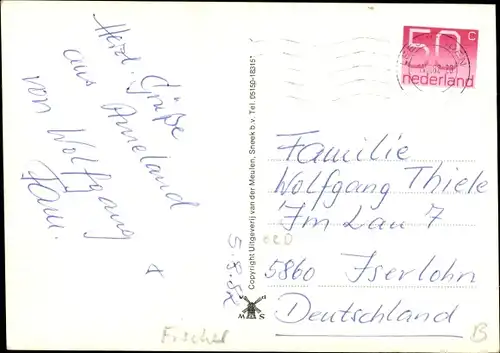 Herzl. Grüße
aus Ameland
von Wolfgang
+ Fam.
5.8.82
Copyright Uitgeverij van der Meulen, Sneek b.v. Tel. 05150-18315*
M S
50 c
nederland
Familie
Wolfgang Thiele
Im Lau 7
5860 Iserlohn
Deutschland
Fischer
B